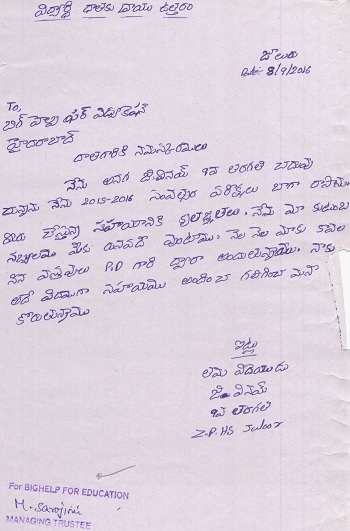 విద్యార్థి దాతకు రాయు ఉత్తరం
జూలురు
Date:- 8/9/2016
To,
బిగ్ హెల్ప్ ఫర్ ఎడ్యుకేషన్
హైదరాబాద్
దాతగారికి నమస్కారములు
నేను అనగా వినయ్ 9వ తరగతి చదువు
చున్నాను నేను 2015-2016 సంవత్సర పరీక్షలు బాగా రాశాను.
మీరు చేస్తున్న సహాయానికి కృతజ్ఞతలు. నేను మా కుటుంబ
సభ్యులము మీకు ఋణపడి వుంటాము. నెల నెల మాకు కావల
సిన వస్తువులు P.D గారి ద్వారా అందుతున్నాయి. నాకు
ఇదే విధముగా సహాయము అందించ గలరని మనవి
కోరుతున్నాము
ఇట్లు
తమ విధేయుడు
జి. వినయ్
9వ తరగతి
Z.P.HS Juloor
For BIGHELP FOR EDUCATION
M. Sarojini
MANAGING TRUSTEE